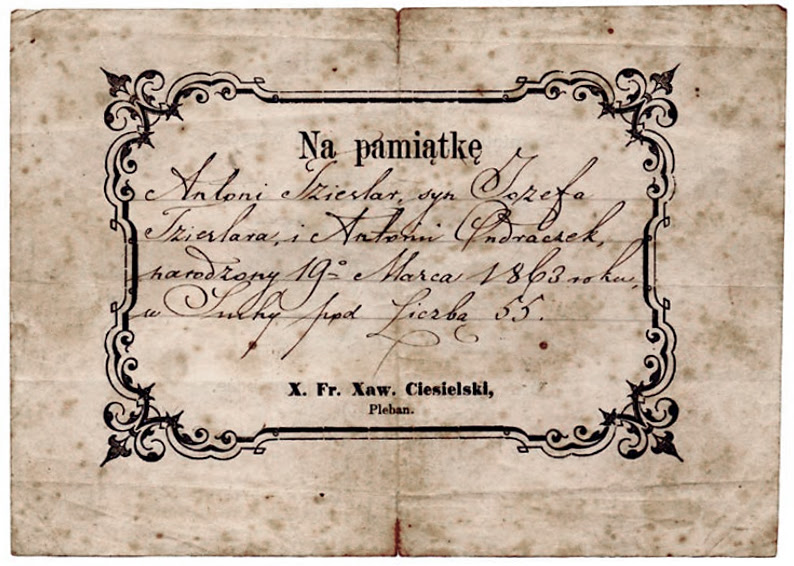 Na pamiątkę
Antoni Tzieslar, syn Jozefa
Tzieslara, i Antonii Ondraczek,
narodzony 19º Marca 1863 roku,
w Suchy pod Liczbą 55.
X. Fr. Xaw. Ciesielski,
Pleban.